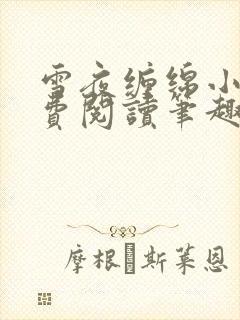 雪夜缠绵小
費閱讀筆趣
摩根 斯莱恩